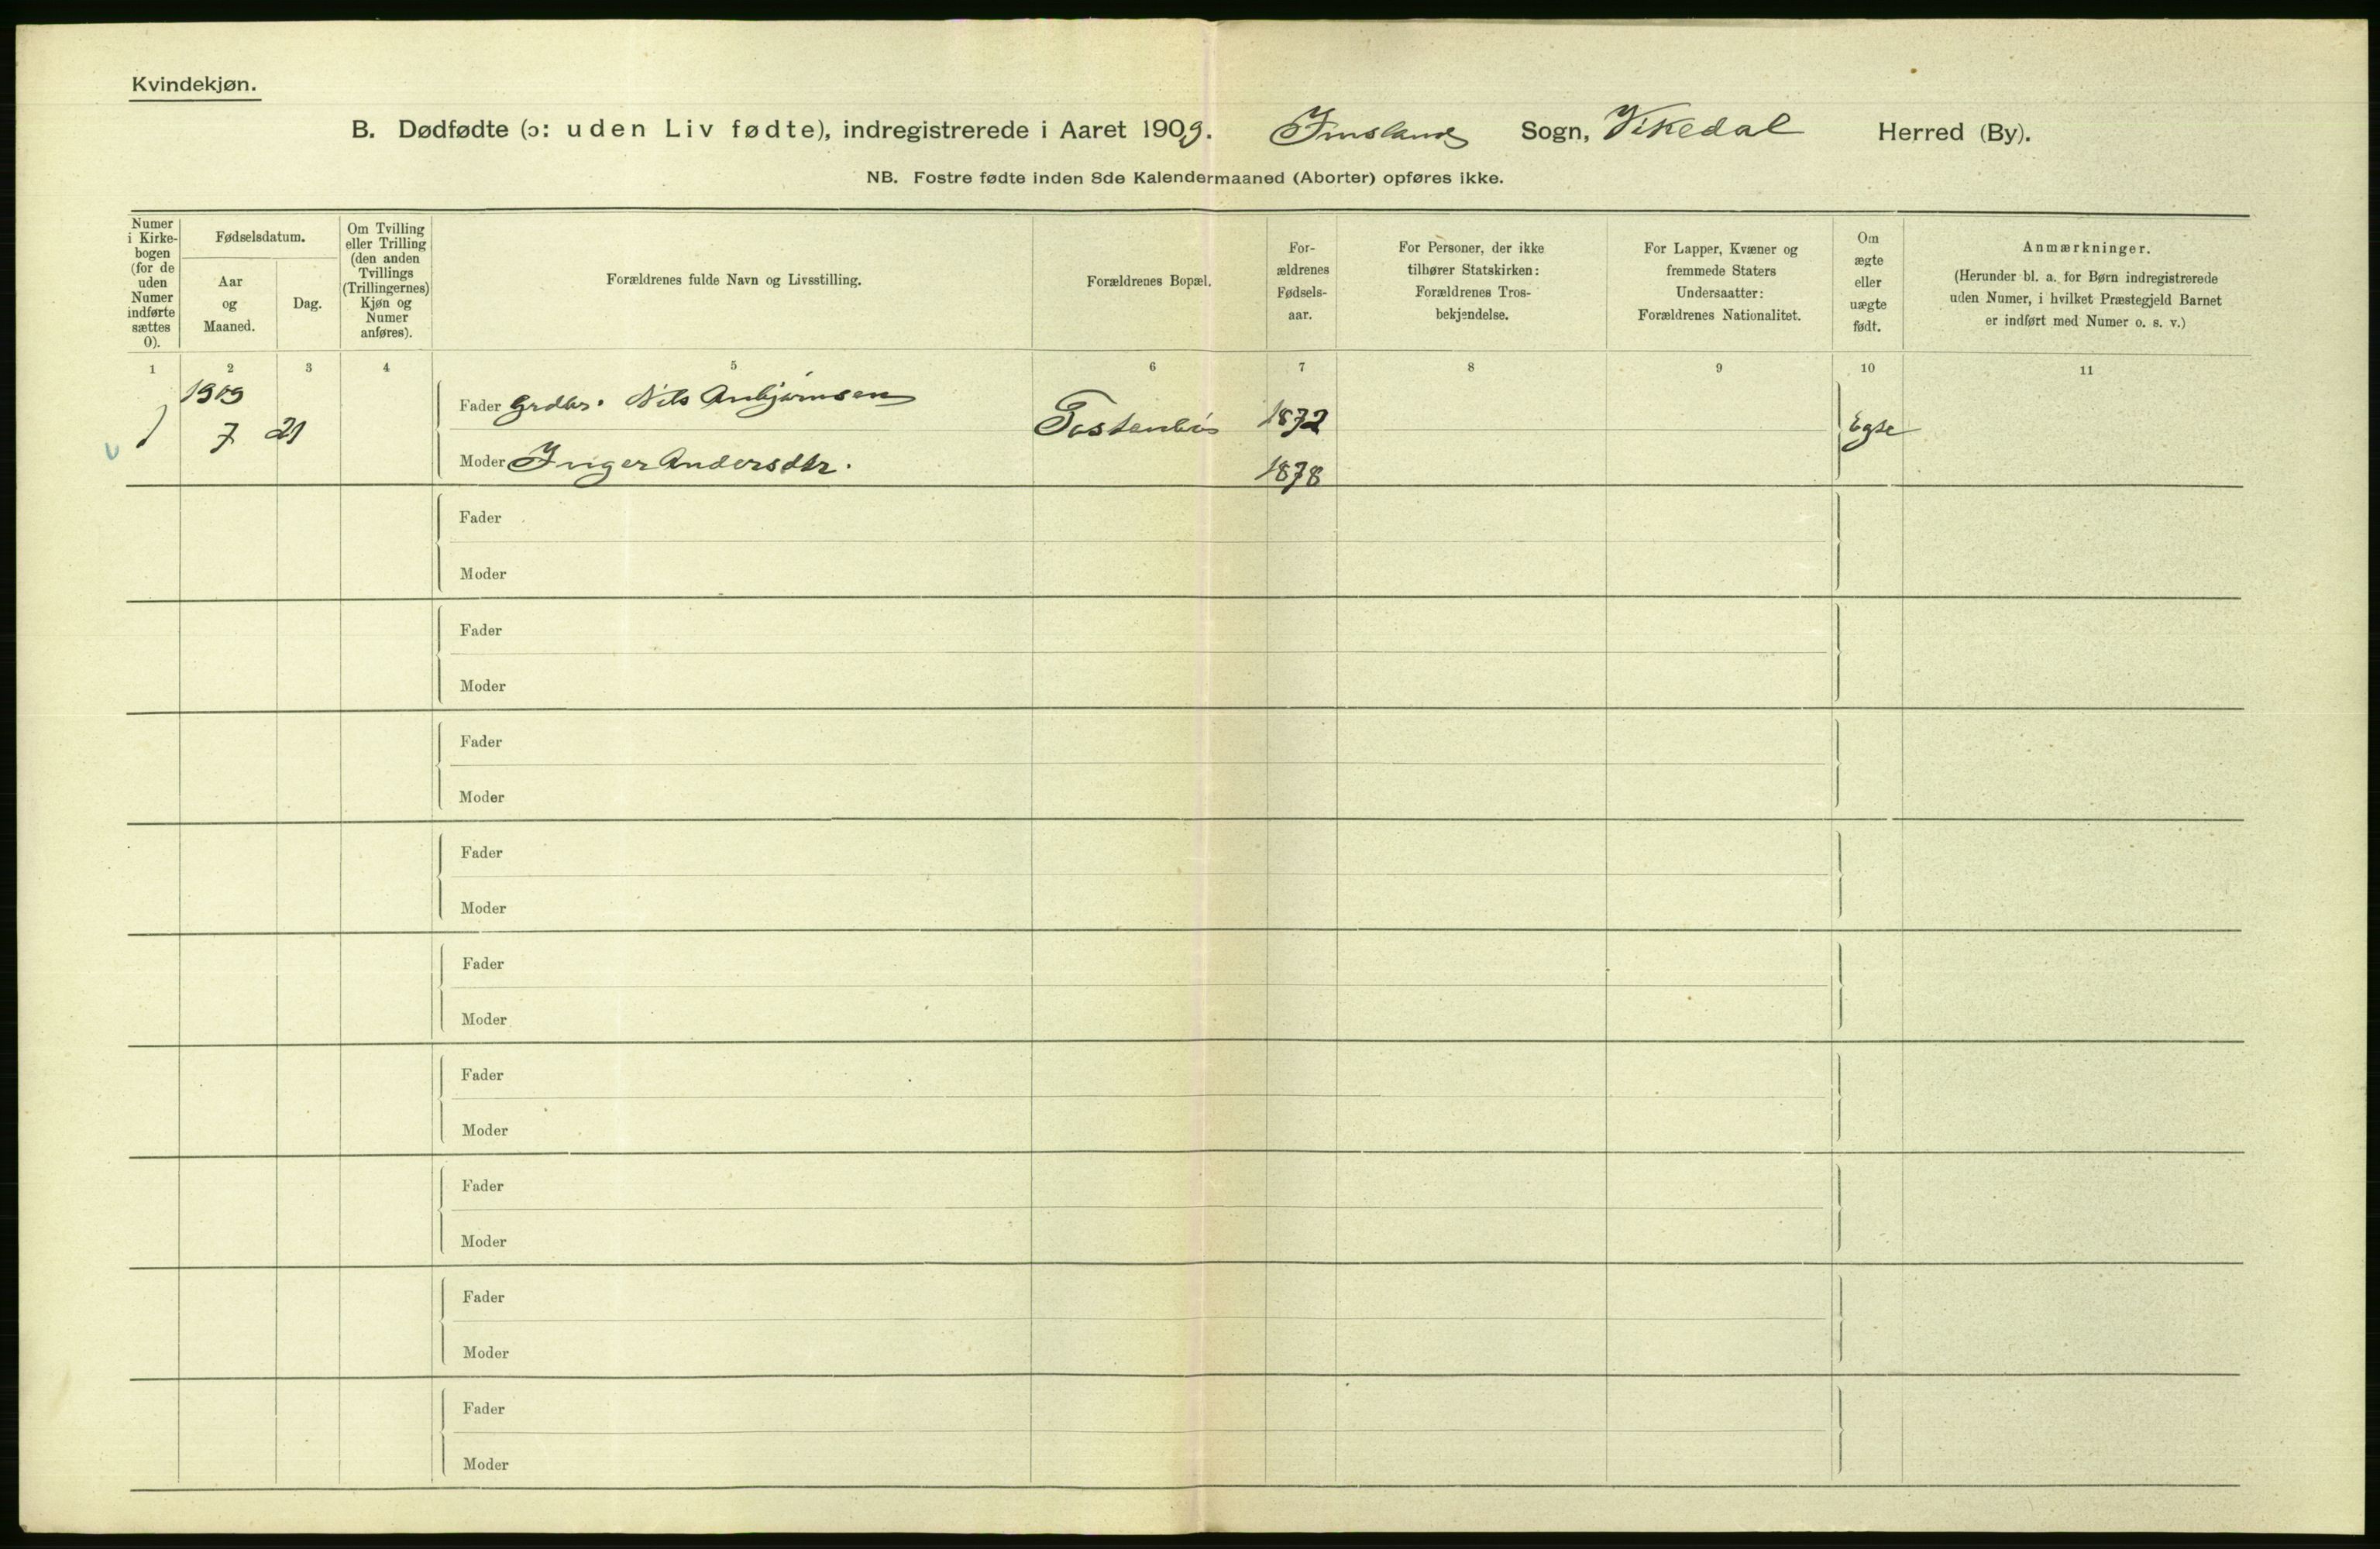 Kvindekjøn.
B. Dødfødte (ɔ: uden Liv fødte), indregistrerede i Aaret 1909. Imsland Sogn, Vikedal Herred (By).
NB. Fostre fødte inden 8de Kalendermaaned (Aborter) opføres ikke.
Numer
i Kirke-
bogen
(for de
uden
Numer
indførte
sættes
0).
Fødselsdatum.
Aar
og
Maaned.
Dag.
Om Tvilling
eller Trilling
(den anden
Tvillings
(Trillingernes)
Kjøn og
Numer
anføres).
Forældrenes fulde Navn og Livsstilling.
Forældrenes Bopæl.
For-
ældrenes
Fødsels-
aar.
For Personer, der ikke
tilhører Statskirken:
Forældrenes Tros-
bekjendelse.
For Lapper, Kvæner og
fremmede Staters
Undersaatter:
Forældrenes Nationalitet.
Om
ægte
eller
uægte
født.
Anmærkninger.
(Herunder bl. a. for Børn indregistrerede
uden Numer, i hvilket Præstegjeld Barnet
er indført med Numer o. s. v.)
1 2 3 4 5 6 7 8 9 10 11
1909
1 7 21
Fader Grdbr. Nils Anbjørnsen
Tostenbø 1872 Egte
Moder Inger Andersdtr. 1878
Fader
Moder
Fader
Moder
Fader
Moder
Fader
Moder
Fader
Moder
Fader
Moder
Fader
Moder
Fader
Moder
Fader
Moder